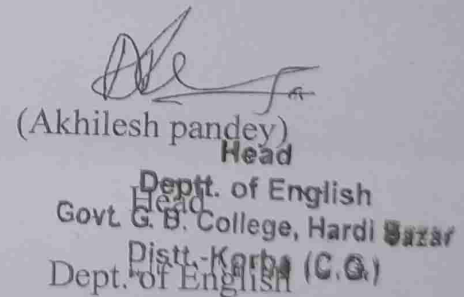 (Akhilesh pandey)
Head
Deptt. of English
Head
Govt. G. B. College, Hardi Bazar
Distt.-Korba (C.G.)
Dept. of English